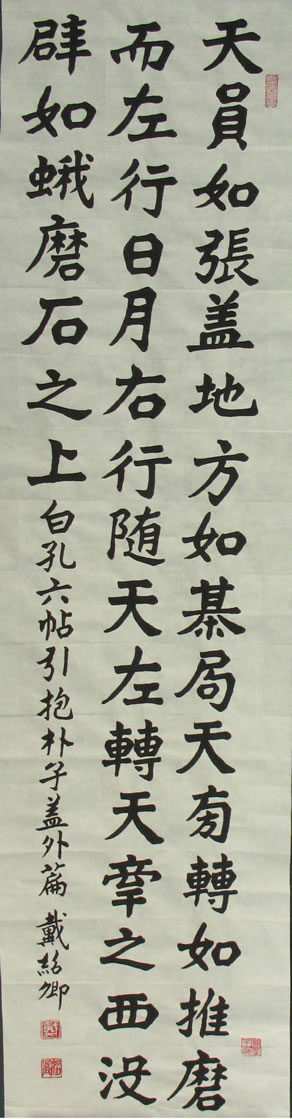 天員如張盖地方如棊局天旁轉如推磨
而左行日月右行随天左轉天牽之西没
辟如蛾磨石之上
白孔六帖引抱朴子盖外篇 戴紹卿